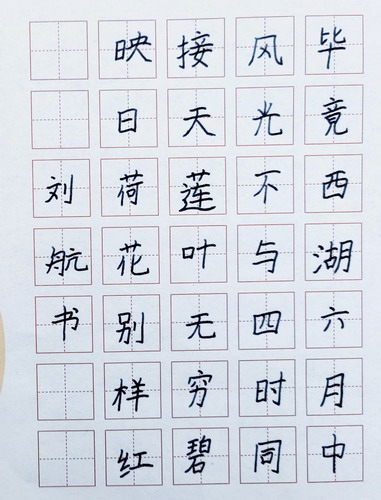 毕竟西湖六月中
风光不与四时同
接天莲叶无穷碧
映日荷花别样红
刘航书